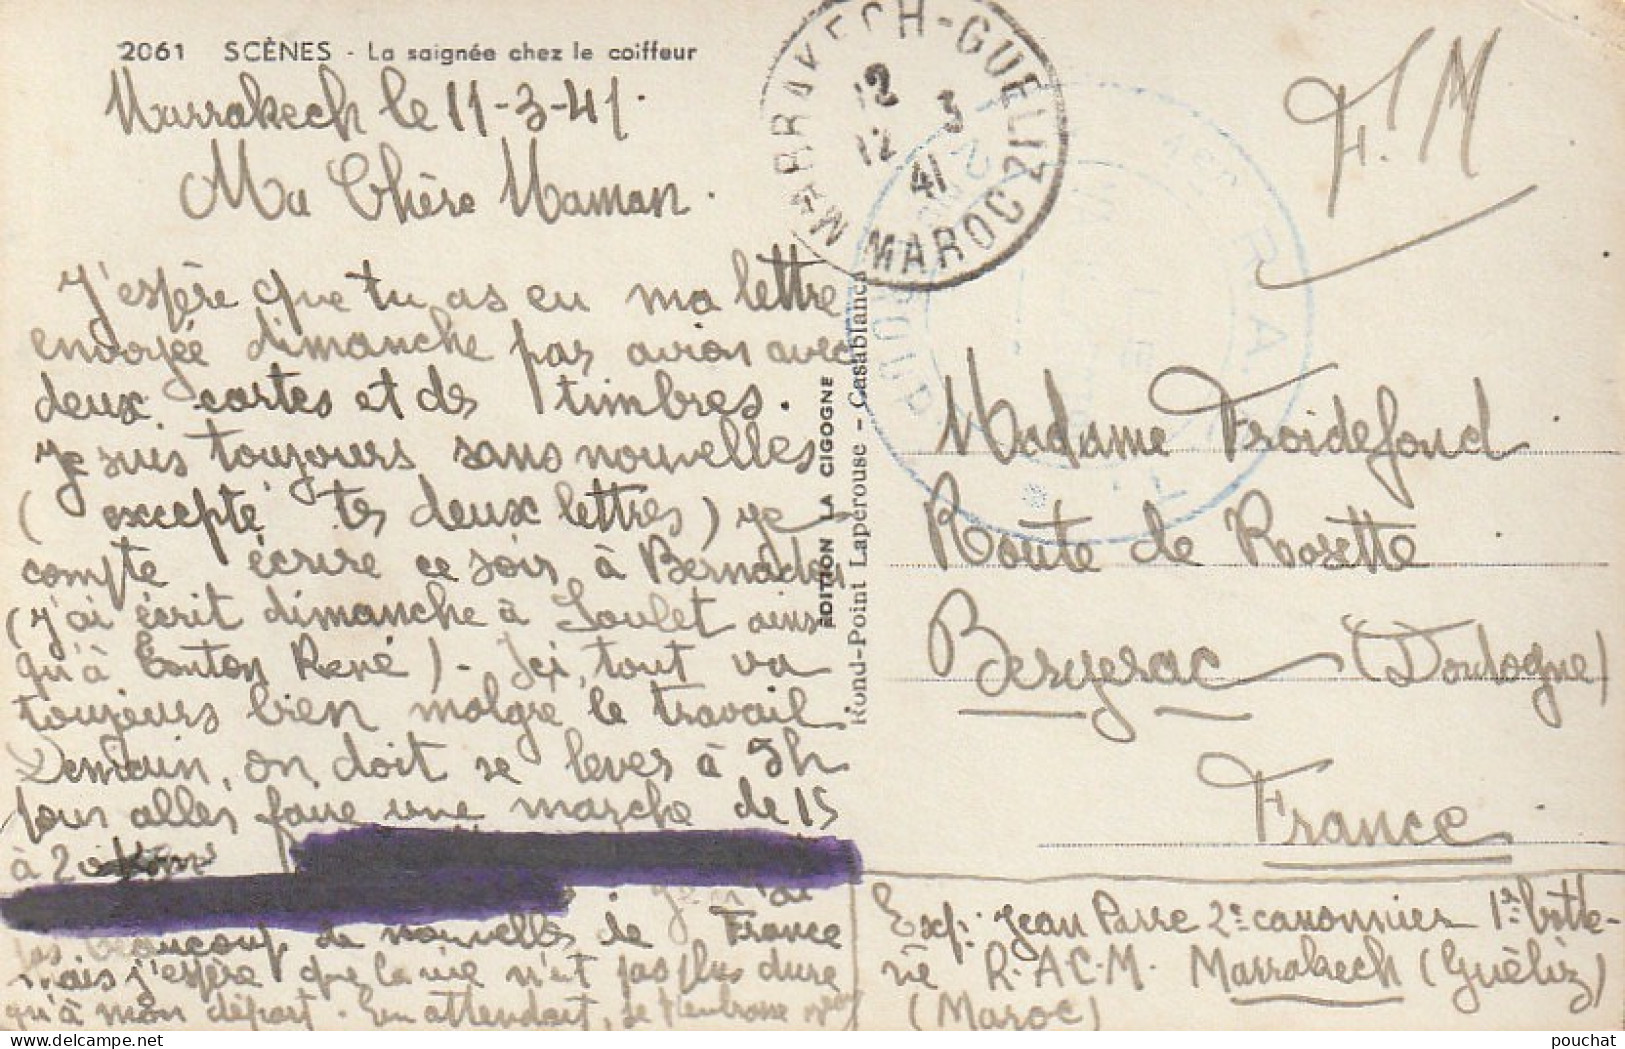 2061 SCÈNES - La saignée chez le coiffeur
Marrakech le 11-3-41.
Ma Chère Maman.
J'espère que tu as eu ma lettre
envoyée dimanche par avion avec
deux cartes et des timbres.
Je suis toujours sans nouvelles
(excepté tes deux lettres) je
compte écrire ce soir à
(j'ai écrit dimanche à Loulet ainsi
qu'à Tonton René) - Ici, tout va
toujours bien malgré le travail.
Demain, on doit se lever à 5h
pour aller faire une marche de 15
à 20 km
Je n'ai
pas beaucoup de nouvelles de France
mais j'espère que la vie n'est pas plus dure
qu'à mon départ. En attendant, je t'embrasse
MARRAKECH-GUELIZ
12 3
12 41
MAROC
R.A.
GROUP
F.M
EDITION LA CIGOGNE
Rond-Point Laperouse - Casablanca
Madame Froidefond
Route de Rosette
Bergerac (Dordogne)
France
Exp: Jean Parre 2e canonnier 1re batte-
rie R.A.C.M. Marrakech (Guéliz)
(Maroc)
pouchat © delcampe.net